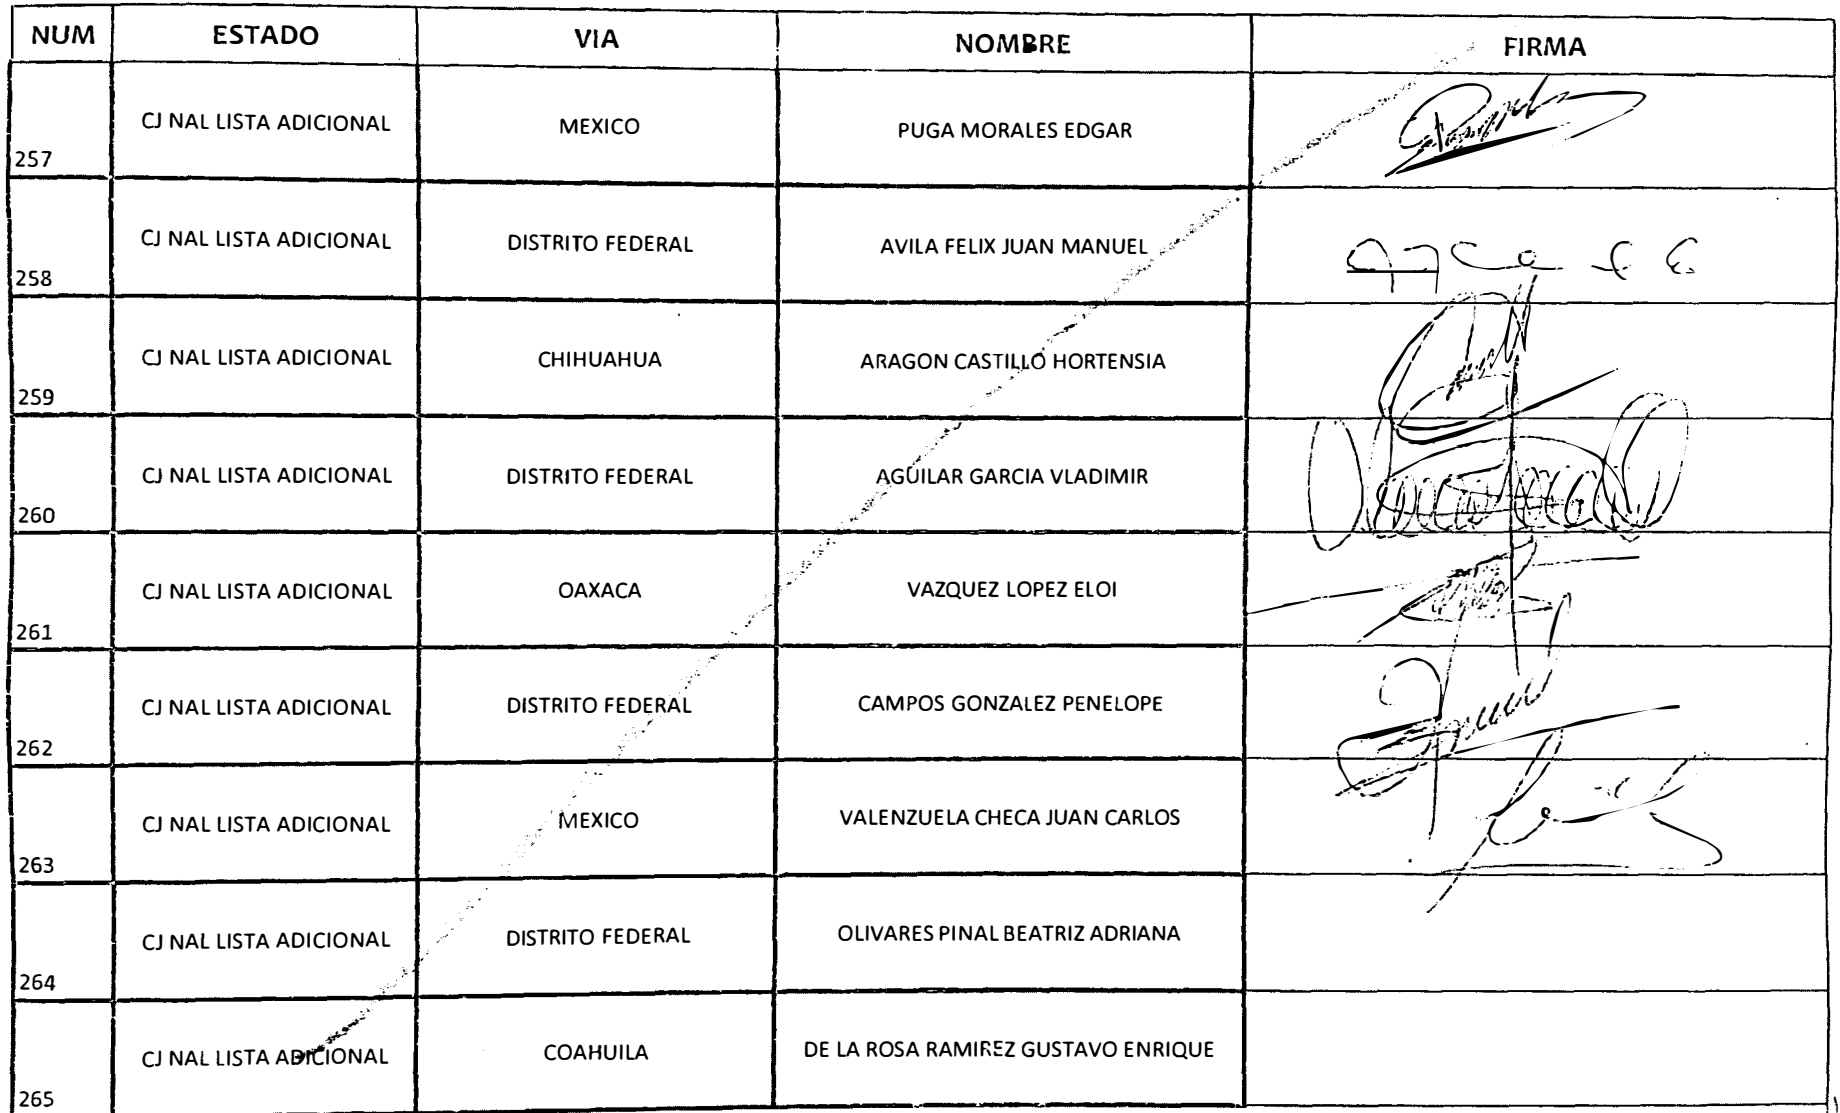 NUM ESTADO VIA NOMBRE FIRMA
257 CJ NAL LISTA ADICIONAL MEXICO PUGA MORALES EDGAR
258 CJ NAL LISTA ADICIONAL DISTRITO FEDERAL AVILA FELIX JUAN MANUEL
259 CJ NAL LISTA ADICIONAL CHIHUAHUA ARAGON CASTILLO HORTENSIA
260 CJ NAL LISTA ADICIONAL DISTRITO FEDERAL AGUILAR GARCIA VLADIMIR
261 CJ NAL LISTA ADICIONAL OAXACA VAZQUEZ LOPEZ ELOI
262 CJ NAL LISTA ADICIONAL DISTRITO FEDERAL CAMPOS GONZALEZ PENELOPE
263 CJ NAL LISTA ADICIONAL MEXICO VALENZUELA CHECA JUAN CARLOS
264 CJ NAL LISTA ADICIONAL DISTRITO FEDERAL OLIVARES PINAL BEATRIZ ADRIANA
265 CJ NAL LISTA ADICIONAL COAHUILA DE LA ROSA RAMIREZ GUSTAVO ENRIQUE